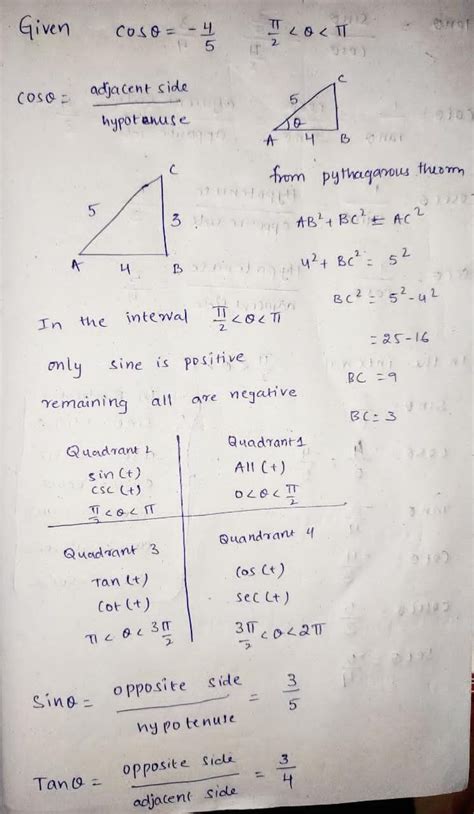 Given cosθ = -4/5 π/2 < θ < π
cosθ = adjacent side / hypotenuse
C
5
θ
A 4 B
C
5
3
A 4 B
from pythagarous theorm
AB² + BC² = AC²
4² + BC² = 5²
BC² = 5² - 4²
= 25 - 16
BC = 9
BC = 3
In the interval π/2 < θ < π
only sine is positive
remaining all are negative
Quadrant 2
sin (+)
csc (+)
π/2 < θ < π
Quadrant 1
All (+)
0 < θ < π/2
Quadrant 3
Tan (+)
Cot (+)
π < θ < 3π/2
Quandrant 4
Cos (+)
Sec (+)
3π/2 < θ < 2π
Sinθ = opposite side / hypotenuse = 3/5
Tanθ = opposite side / adjacent side = 3/4